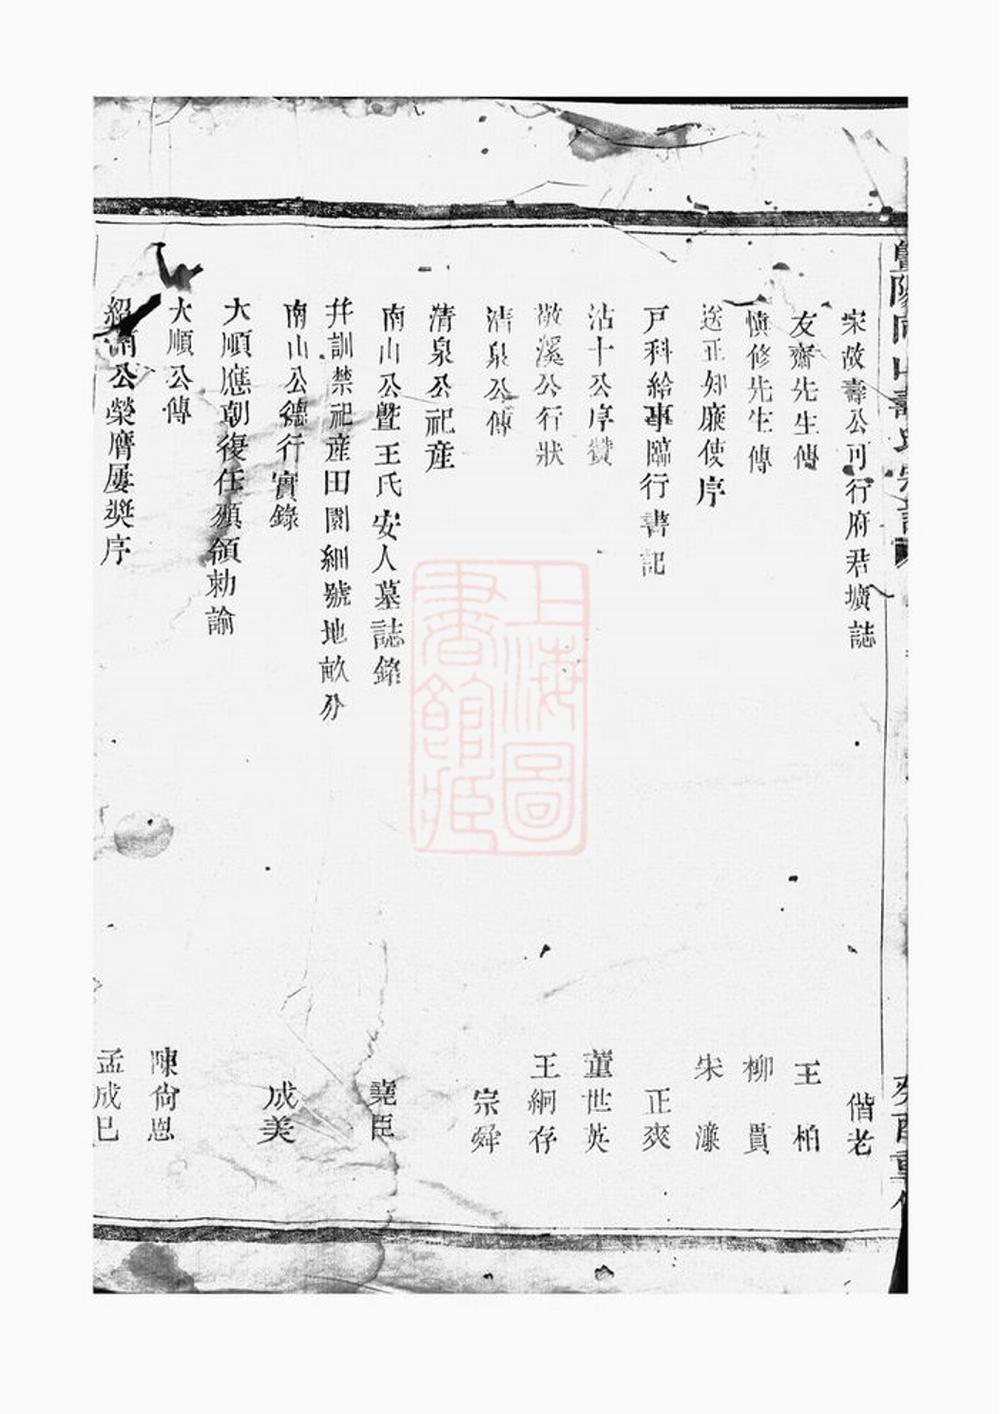 暨陽同山壽氏宗譜
癸酉重修
宋故壽公可行府君壙誌　偕老
友齋先生傳　王柏
慎修先生傳　柳貫
送正如廉使序　朱濂
戸科給事臨行書記　正爽
沾十公序贊　董世英
敬溪公行狀　王絅存
清泉公傳　宗舜
清泉公祀産
南山公曁王氏安人墓誌銘　堯臣
幷訓禁祀産田園細號地畝分
南山公德行實錄　成美
大順應朝復任頒領勅諭
大順公傳　陳尙恩
紹南公榮膺屢奬序　孟成已
上海圖書館藏